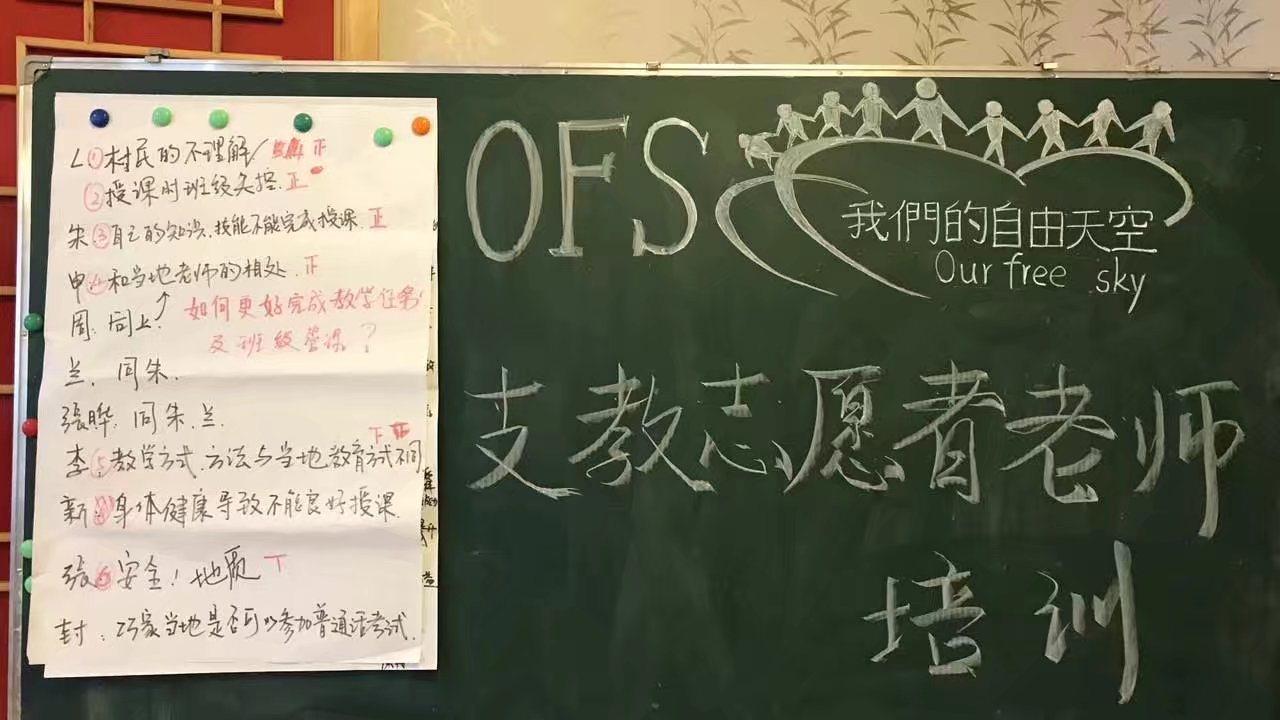 ∠①村民的不理解/ 正
②授课时班级失控.正
朱③自己的知识、技能不能完成授课.正
申④和当地老师的相处.正
周:同上.↑
如何更好完成教学任务
及班级管理?
兰.同朱.
張晔:同朱.兰.
李⑤教学方式.方法与当地教育方式不同
新:身体健康导致不能良好授课.
張⑥安全!地震 丅
封:巧家当地是否可以参加普通话考试.
OFS
我們的自由天空
Our free sky
支教志愿者老师
培训